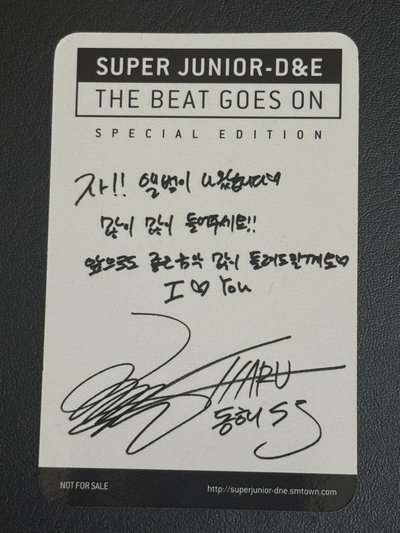 SUPER JUNIOR-D&E
THE BEAT GOES ON
SPECIAL EDITION
자!! 앨범이 나왔습니다♡
많이 많이 들어주세요!!
앞으로도 좋은음악 많이 들려드릴게요♡
I ♡ You
HARU
동해
NOT FOR SALE
http://superjunior-dne.smtown.com/